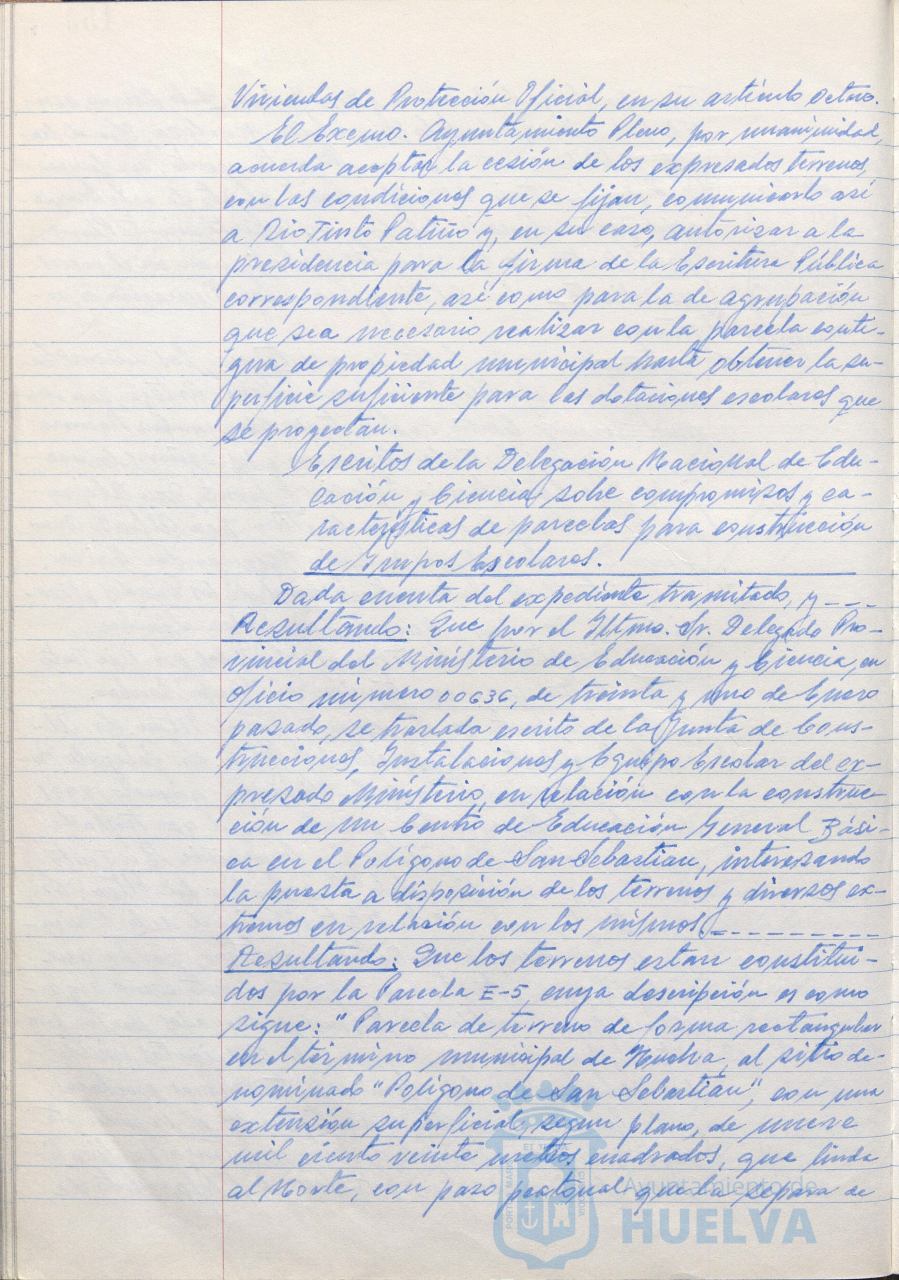 Viviendas de Protección Oficial, en su artículo octavo.
El Excmo. Ayuntamiento Pleno, por unanimidad,
acuerda aceptar la cesión de los expresados terrenos,
con las condiciones que se fijan, comunicarlo así
a Rio Tinto Patiño y, en su caso, autorizar a la
presidencia para la firma de la Escritura Pública
correspondiente, así como para la de agrupación
que sea necesario realizar con la parcela conti-
gua de propiedad municipal hasta obtener la su-
perficie suficiente para las dotaciones escolares que
se proyectan.
Escritos de la Delegación Nacional de Edu-
cación y Ciencia, sobre compromisos y ca-
racterísticas de parcelas para construcción
de Grupos Escolares.
Dada cuenta del expediente tramitado, y ---
Resultando: Que por el Iltmo. Sr. Delegado Pro-
vincial del Ministerio de Educación y Ciencia, en
oficio número 00636, de treinta y uno de Enero
pasado, se traslada escrito de la Junta de Cons-
trucciones, Instalaciones y Equipo Escolar del ex-
presado Ministerio, en relación con la construc-
ción de un Centro de Educación General Bási-
ca en el Polígono de San Sebastian, interesando
la puesta a disposición de los terrenos y diversos ex-
tremos en relación con los mismos.---------
Resultando: Que los terrenos estan constitui-
dos por la Parcela E-5, cuya descripción es como
sigue: "Parcela de terreno de forma rectangular
en el término municipal de Huelva, al sitio de-
nominado "Polígono de San Sebastian", con una
extensión superficial, segun plano, de nueve
mil ciento veinte metros cuadrados, que linda
al Norte, con paso peatonal que la separa de
Ayuntamiento de
HUELVA